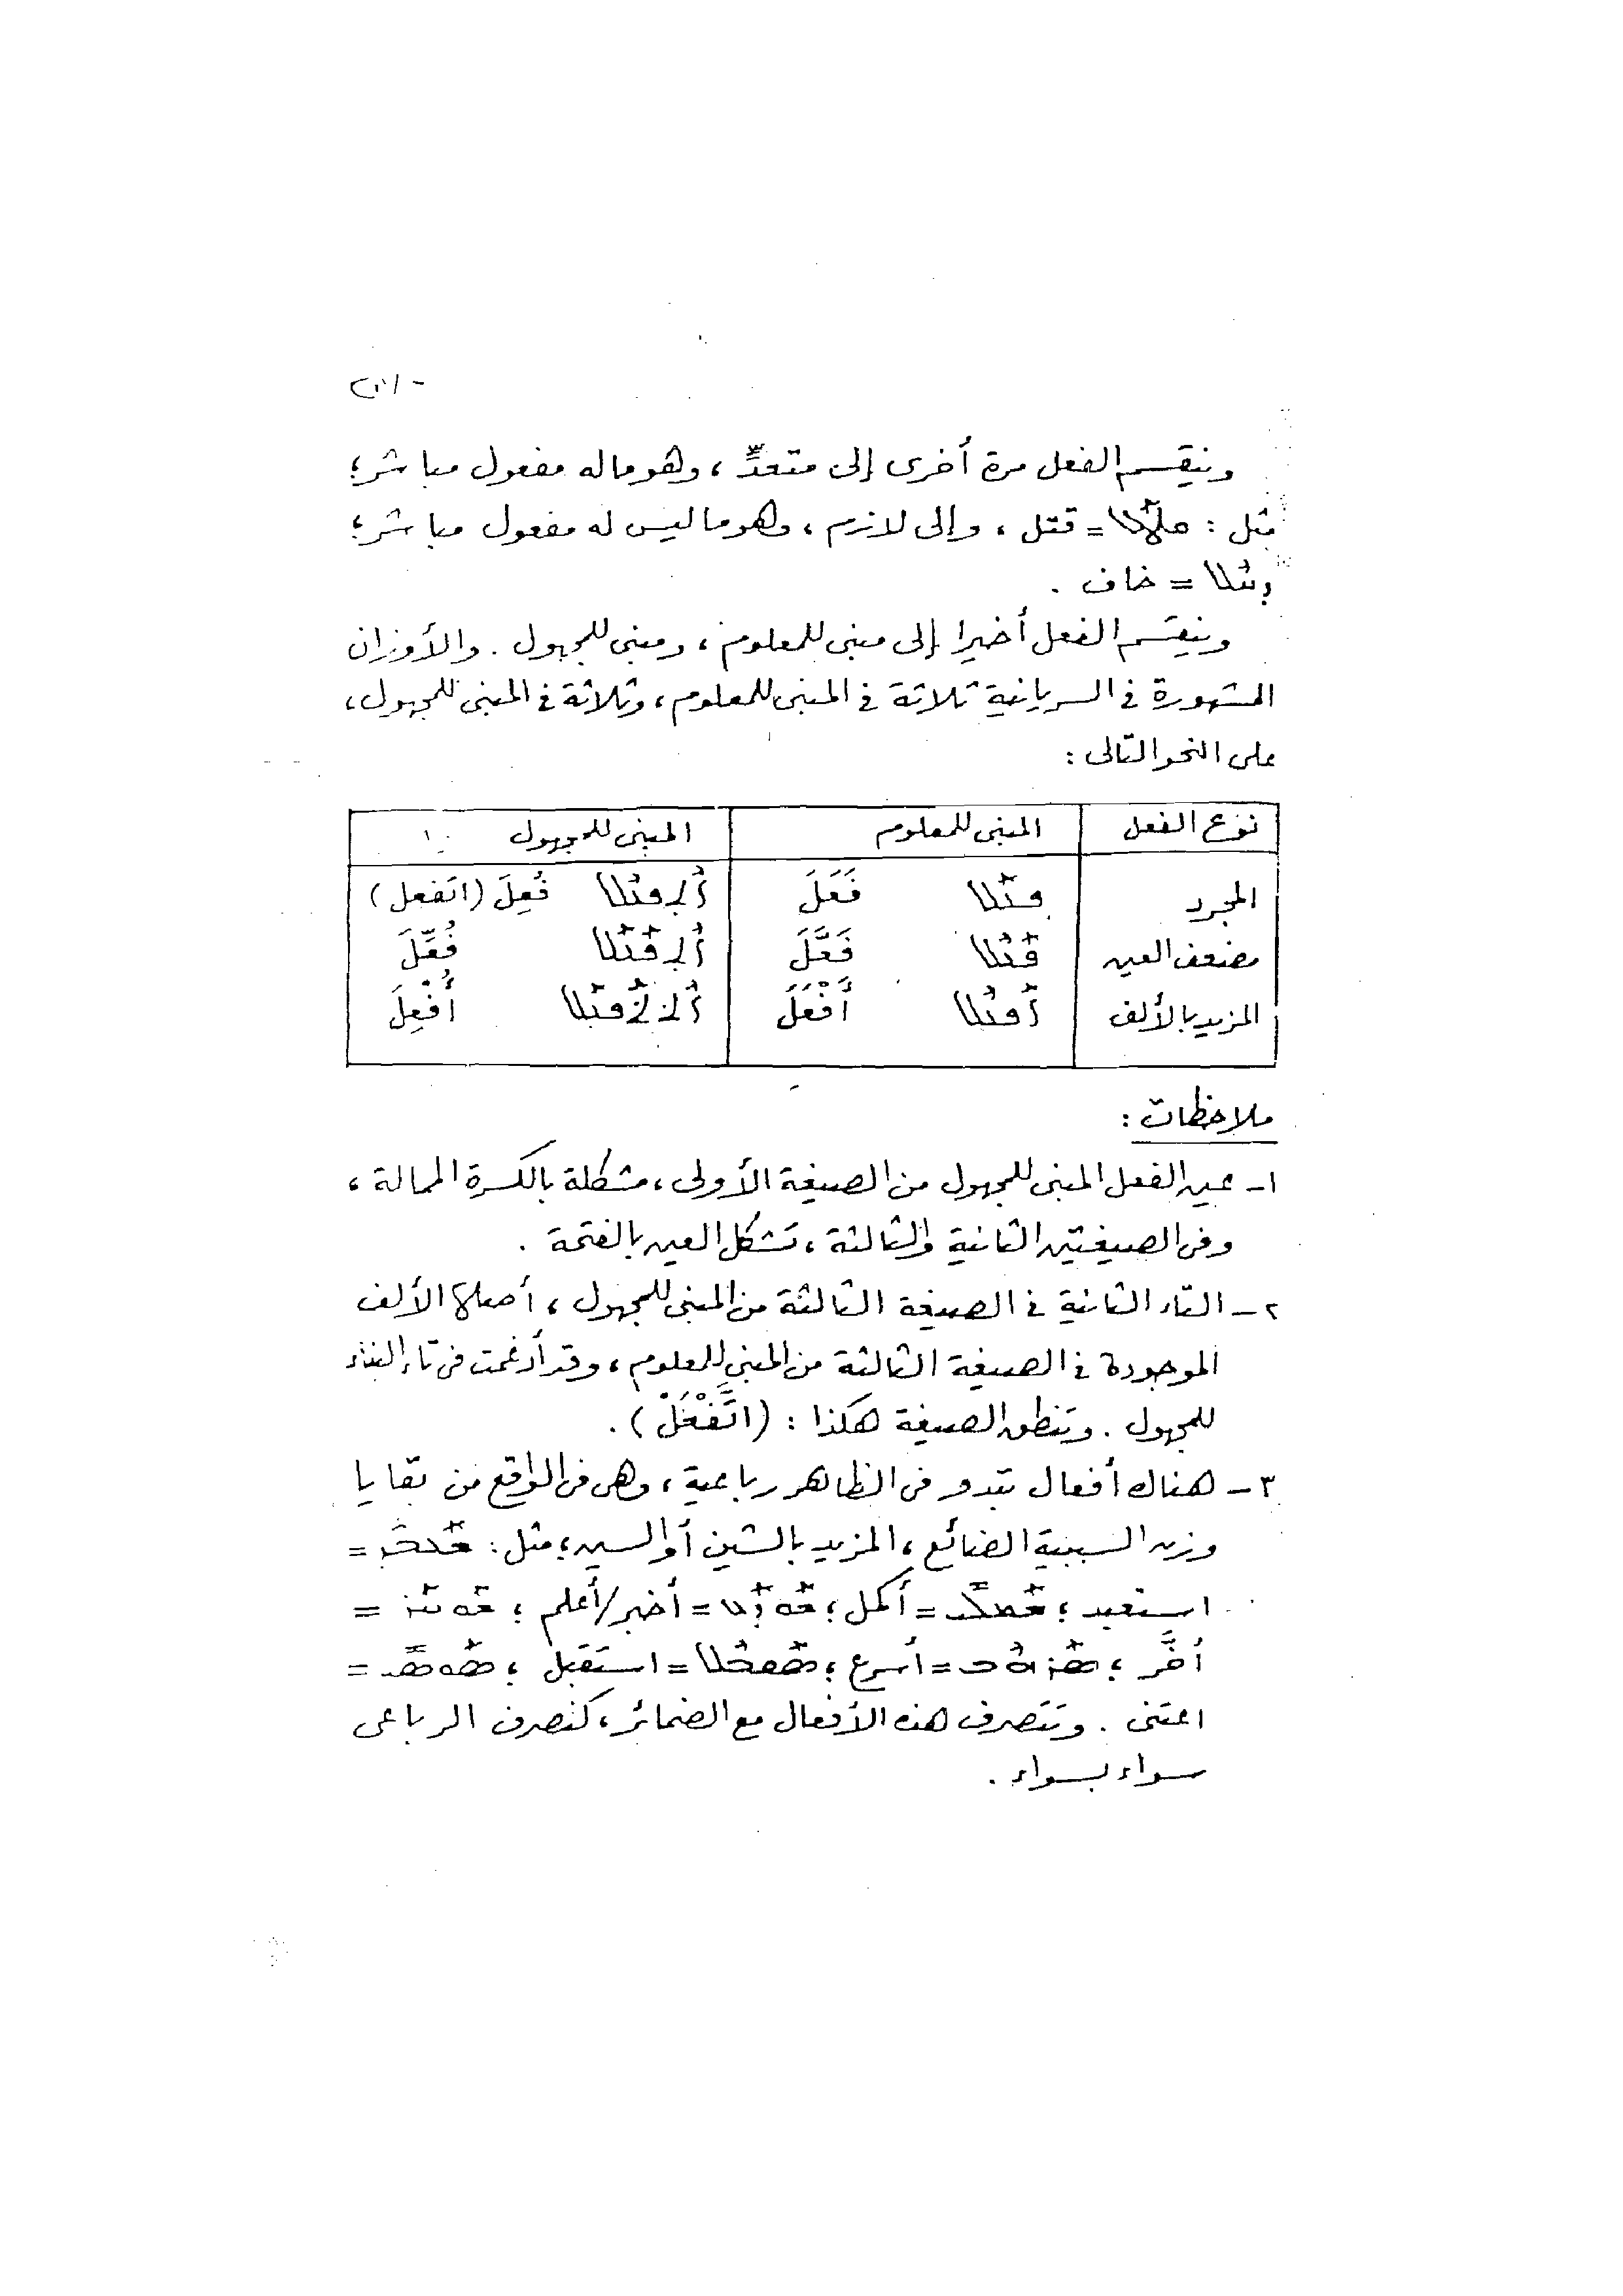 وينقسم الفعل مرة أخرى إلى متعدٍّ ، وهو ما له مفعول مباشر ؛
مثل : ܩܛܠ = قتل ، وإلى لازم ، وهو ما ليس له مفعول مباشر ؛
ܕܚܠ = خاف .
وينقسم الفعل أخيرا إلى مبنى للمعلوم ، ومبنى للمجهول . والأوزان
المشهورة فى السريانية ثلاثة فى المبنى للمعلوم ، وثلاثة فى المبنى للمجهول ،
على النحو التالى :
نوع الفعل المبنى للمعلوم المبنى للمجهول
المجرد فَعَلَ فُعِلَ (اتفعل)
مضعف العين فَعَّلَ فُعِّلَ
المزيد بالألف أَفْعَلَ أُفْعِلَ
ملاحظات :
١- عين الفعل المبنى للمجهول من الصيغة الأولى ، مشكلة بالكسرة الممالة ،
وفى الصيغتين الثانية والثالثة ، تشكل العين بالفتحة .
٢- التاء الثانية فى الصيغة الثالثة من المبنى للمجهول ، أصلها الألف
الموجودة فى الصيغة الثالثة من المبنى للمعلوم ، وقد أدغمت فى تاء البناء
للمجهول . وتنطق الصيغة هكذا : (اتَّفْعَلْ) .
٣- هناك أفعال تبدو فى الظاهر رباعية ، وهى فى الواقع من بقايا
وزن السببية الضائع ، المزيد بالشين أو السين ؛ مثل : ܫܥܒܕ =
استعبد ؛ ܫܡܠܝ = أكمل ؛ ܫܘܕܥ = أخبر/أعلم ؛ ܫܘܚܪ =
أخَّر ؛ ܣܪܗܒ = أسرع ؛ ܣܩܒܠ = استقبل ؛ =
اعتنى . وتتصرف هذه الأفعال مع الضمائر ، كتصرف الرباعى
سواء بسواء .